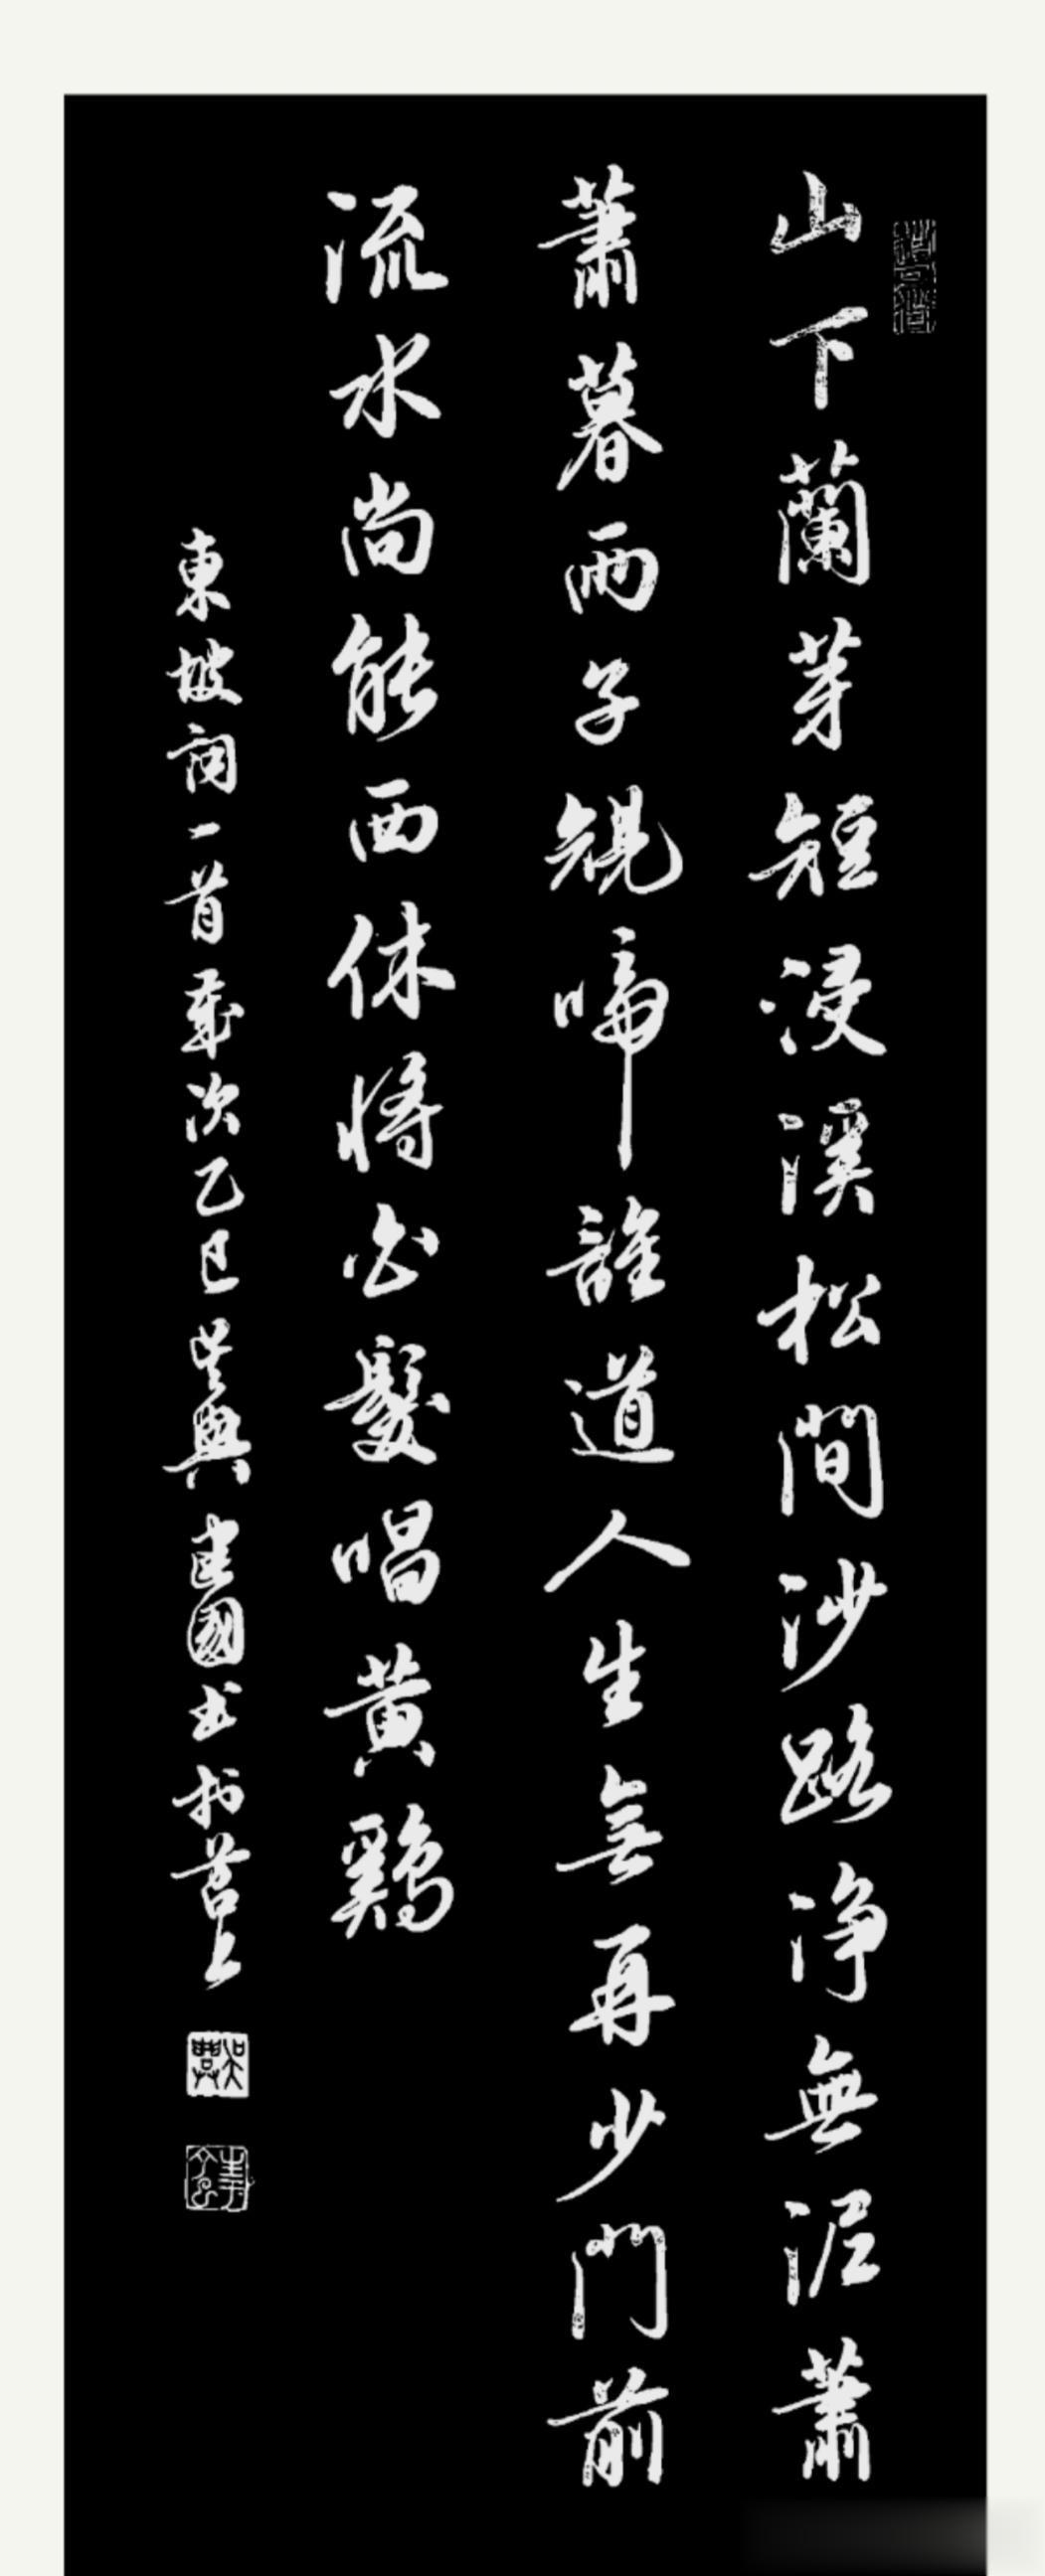 山下蘭芽短浸溪松間沙路淨無泥蕭
蕭暮雨子規啼誰道人生無再少門前
流水尚能西休將白髮唱黄鷄
東坡詞一首歲次乙巳吳興建國書於苕上